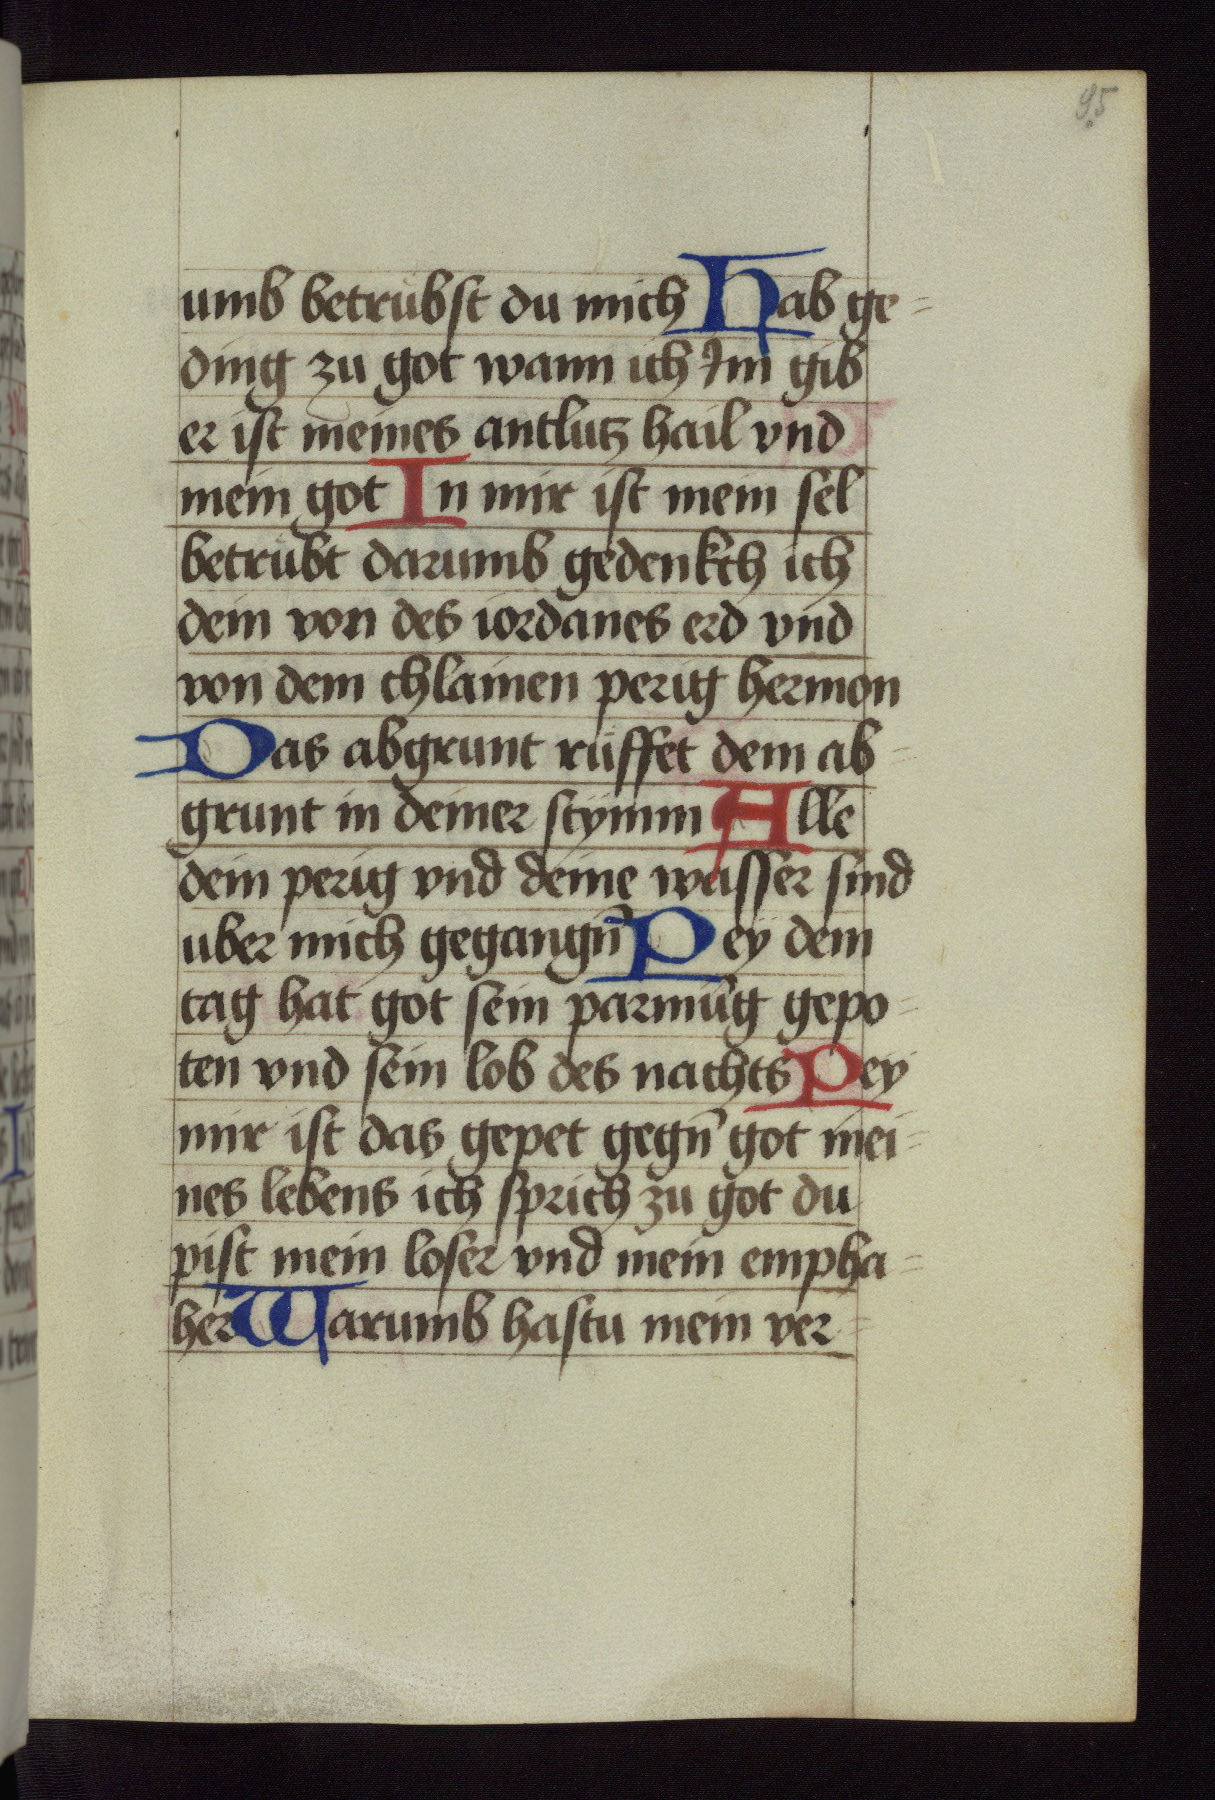 95
umb betrübst du mich Hab ge-
ding zu got wann ich Im gib
er ist meines antlutz hail vnd
mein got In mir ist mein sel
betrübt darumb gedenkch ich
dein von des iordanes erd vnd
von dem chlainen perig hermon
Das abgrunt rüffet dem ab-
grunt in deiner stÿmm Alle
dein perig vnd deine wasser sind
uber mich gegangn̄ Peÿ dem
tag hat got sein parmūg gepo-
ten vnd sein lob des nachts Pey
mir ist das gepet gegn̄ got mei-
nes lebens ich sprich zu got du
pist mein loser vnd mein empha-
her Warumb hastu mein ver-